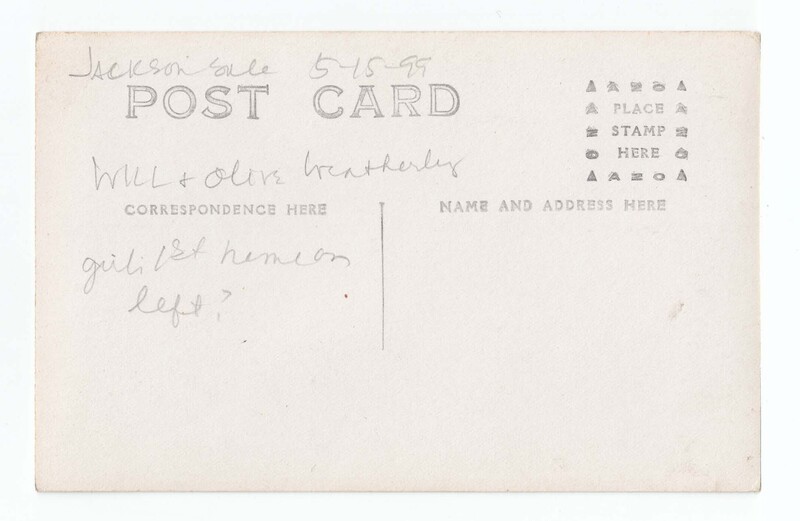 Jackson Sale 5-15-99
POST CARD
Will & Olive Weatherley
CORRESPONDENCE HERE
NAME AND ADDRESS HERE
girl: 1st name on
left?
AZO
PLACE
STAMP
HERE
AZO